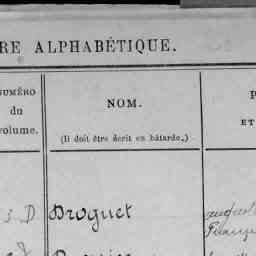 RE ALPHABÉTIQUE.
NUMÉRO
du
volume.
NOM.
(Il doit être écrit en bâtarde.)
P
ET
3 D
Droguet